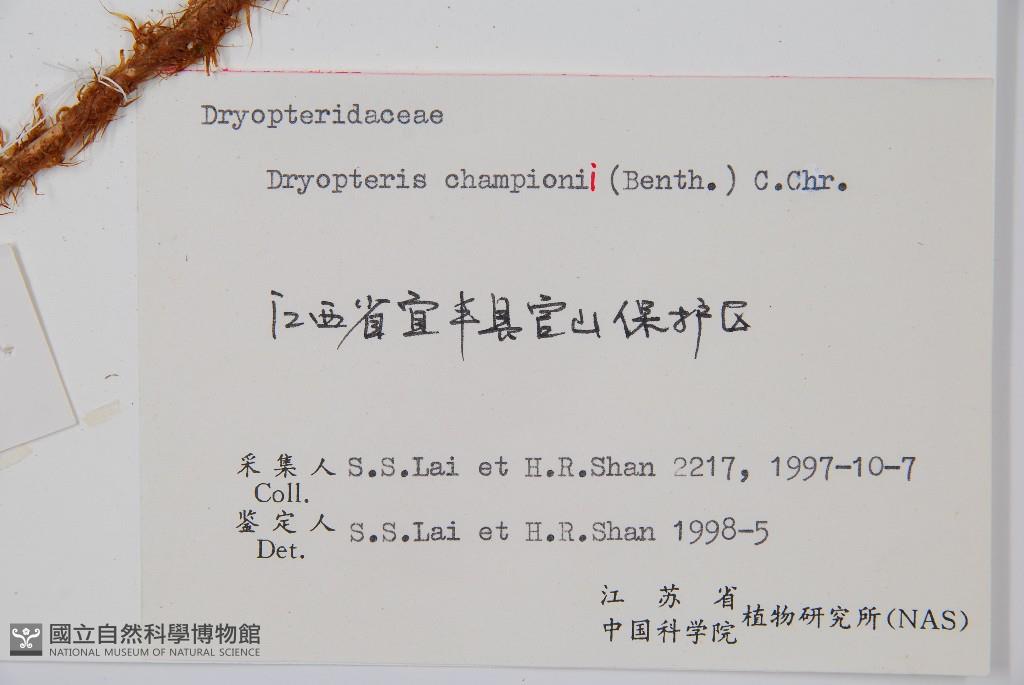 Dryopteridaceae
Dryopteris championii (Benth.) C.Chr.
江西省宜丰县官山保护区
采集人 S.S.Lai et H.R.Shan 2217, 1997-10-7
Coll.
鉴定人 S.S.Lai et H.R.Shan 1998-5
Det.
江苏省
中国科学院 植物研究所(NAS)
國立自然科學博物館
NATIONAL MUSEUM OF NATURAL SCIENCE